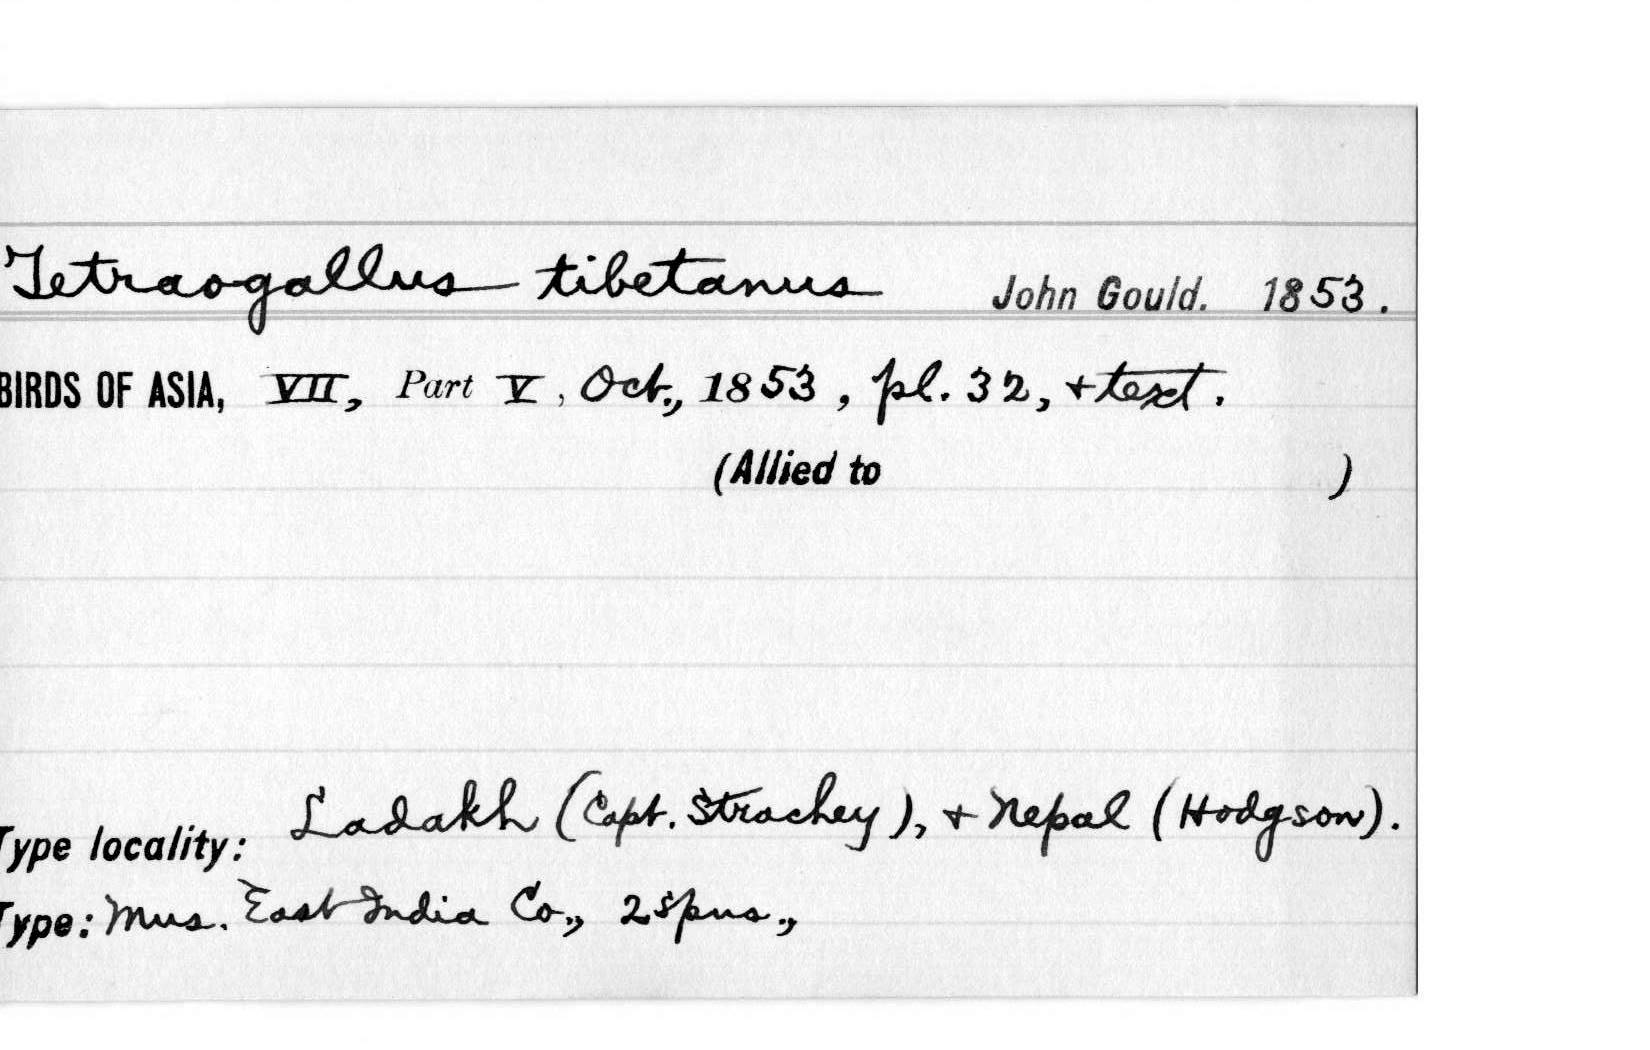 Tetraogallus tibetanus John Gould. 1853.
BIRDS OF ASIA, VII, Part V, Oct., 1853, pl. 32, + text.
(Allied to )
Type locality: Ladakh (Capt. Strachey), + Nepal (Hodgson).
Type: Mus. East India Co., 2 spns.,